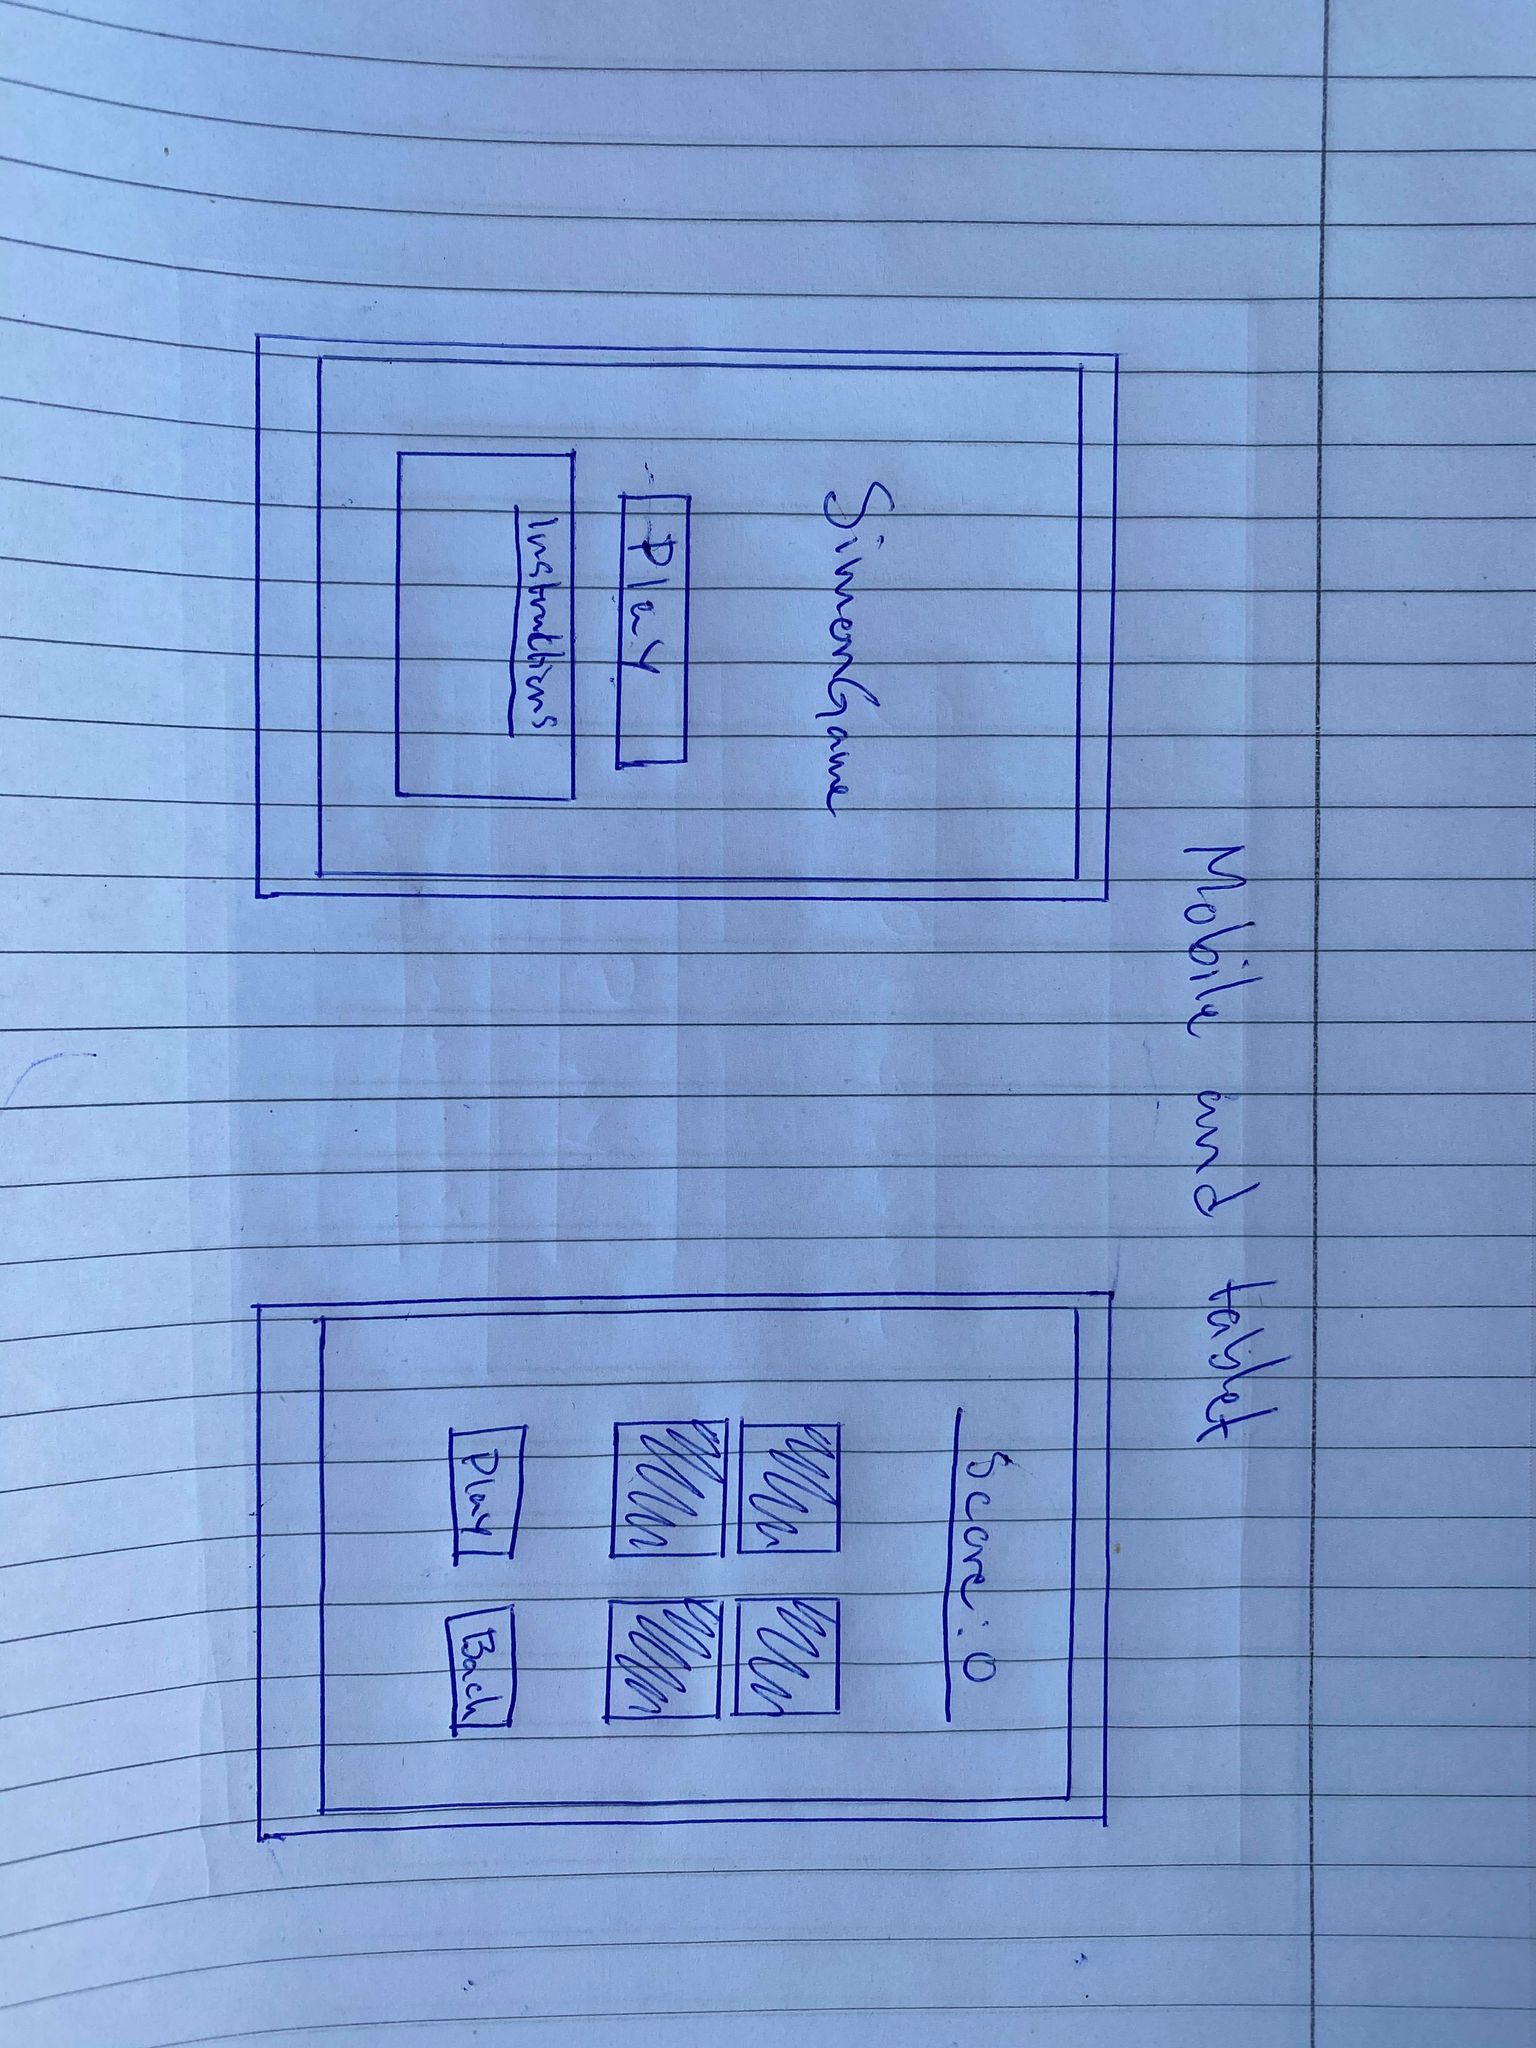 Mobile and tablet
SimonGame
Play
Instruktions
Score: 0
Play
Back